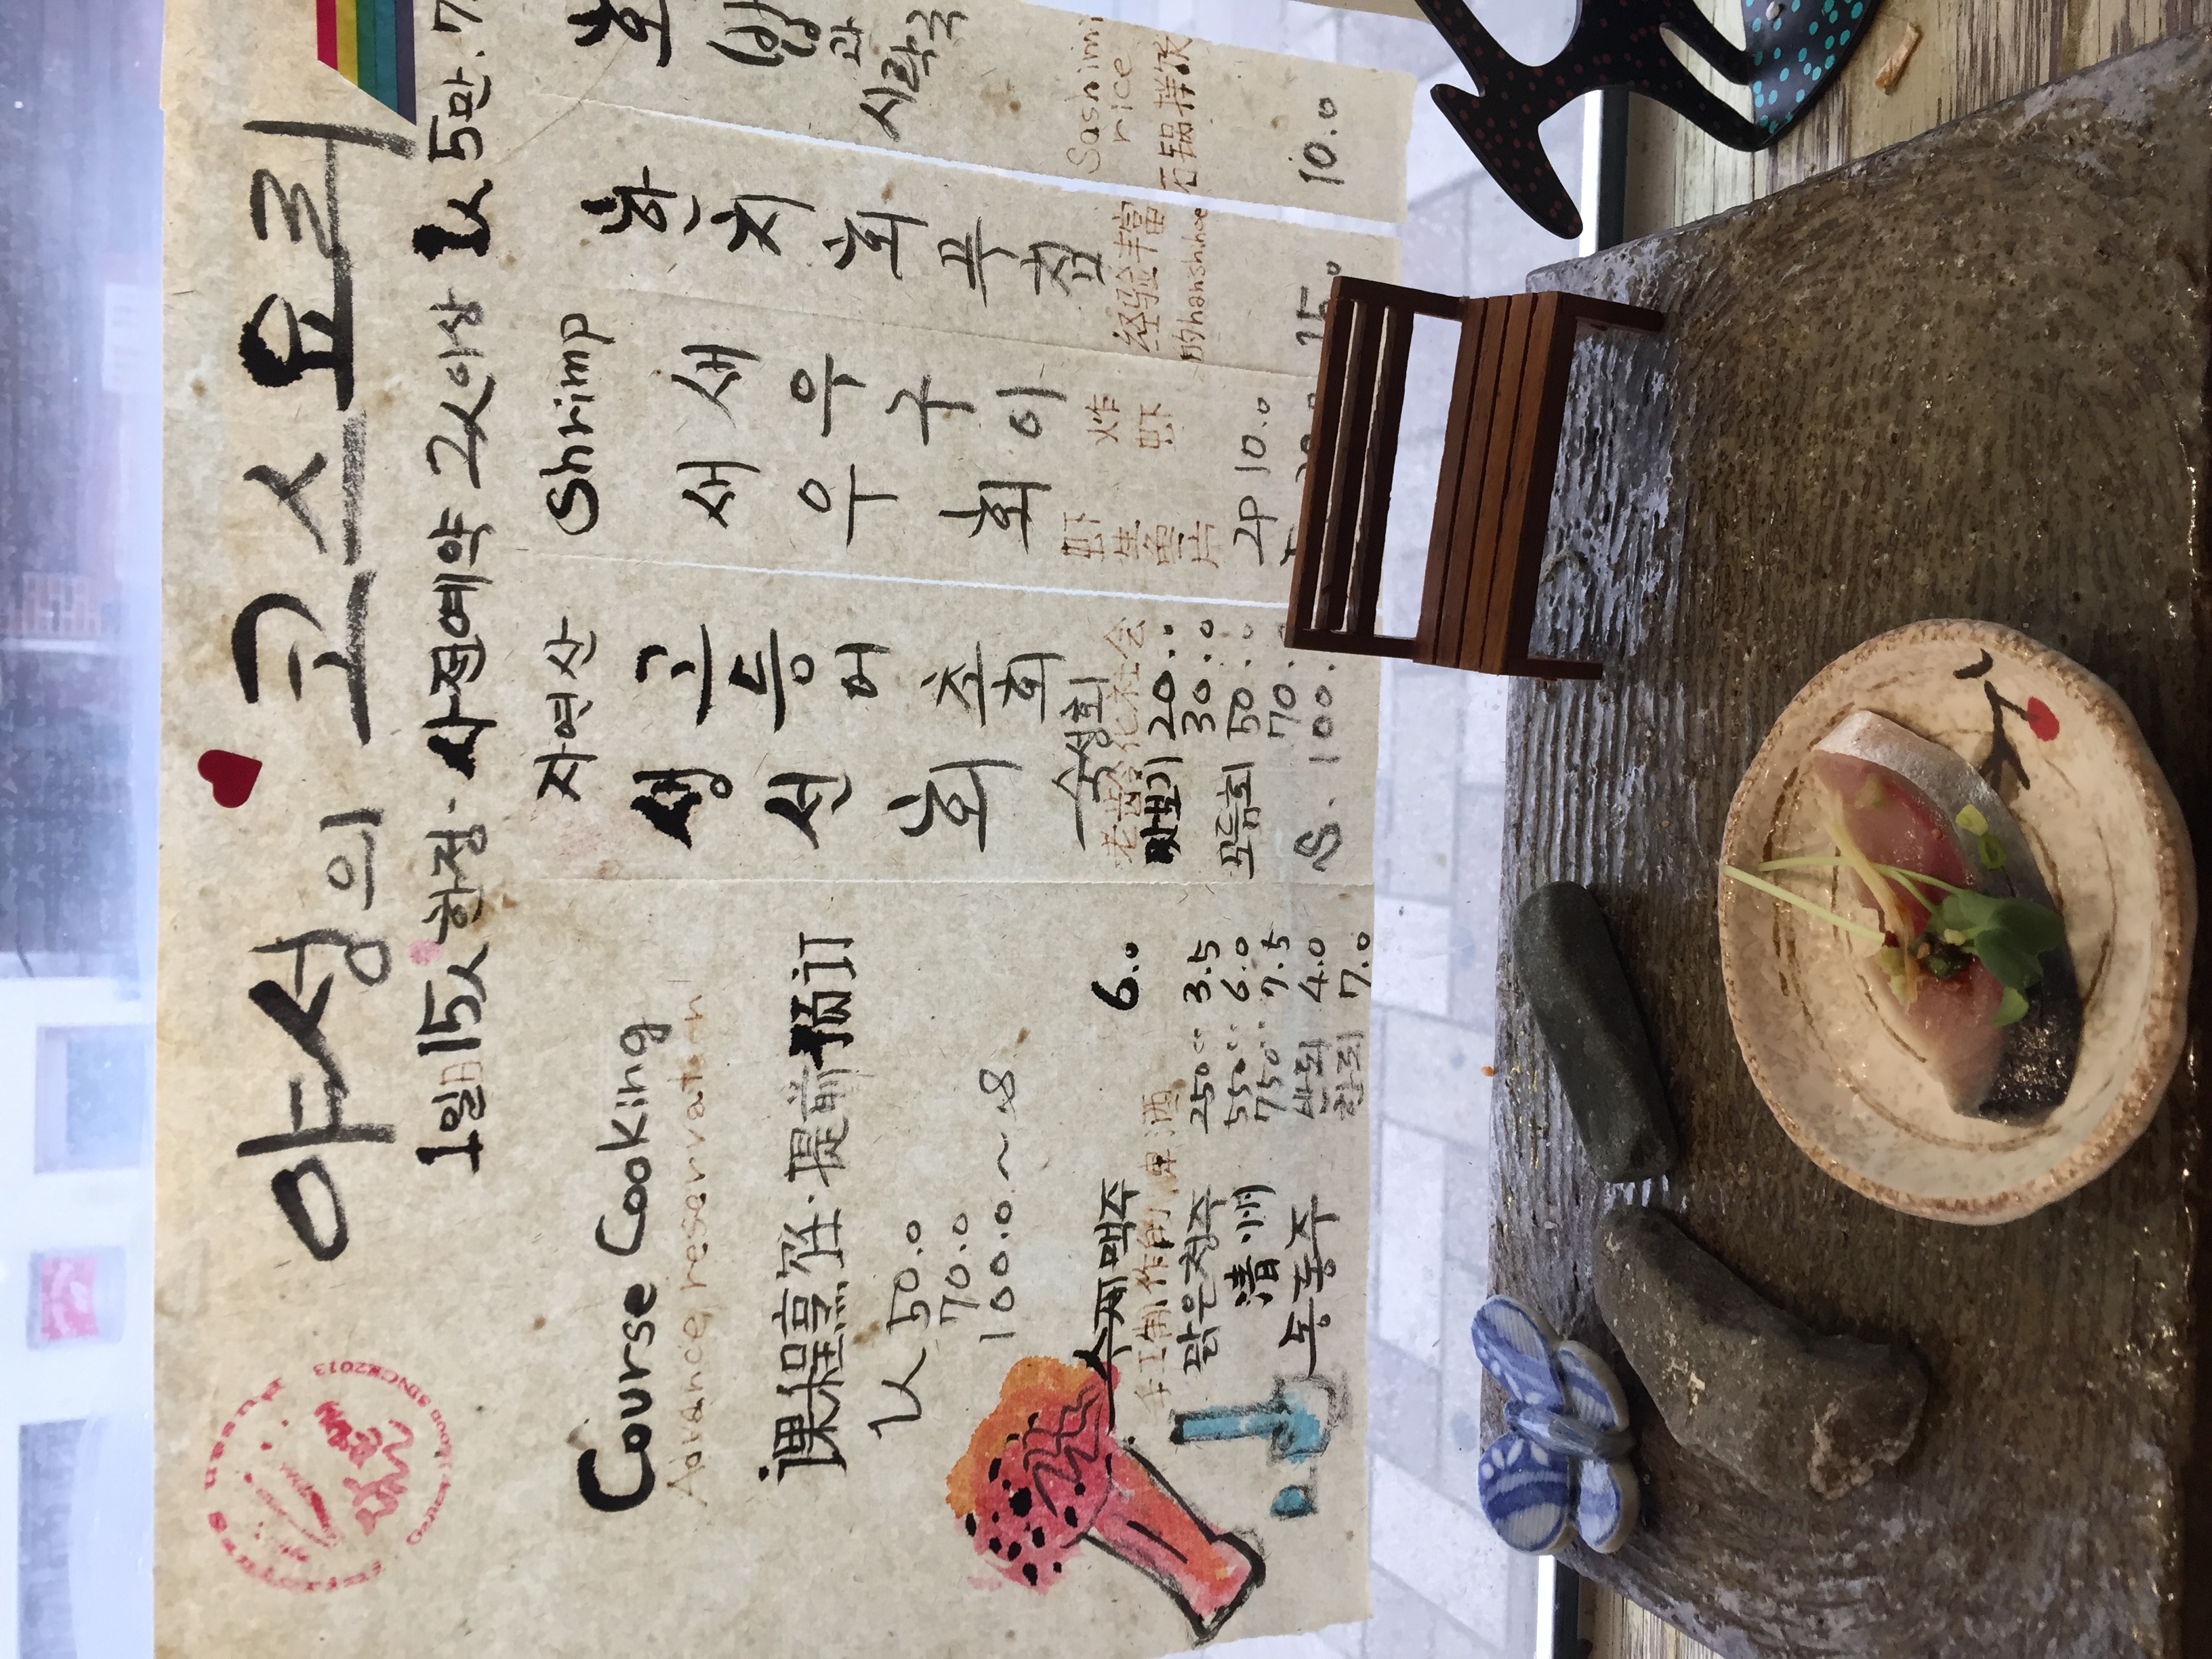 야성의 코스요리
1일 日 15人 한정· 사전예약 2人이상 1人 5만. 7
Course Cooking
Advance reservation
课程烹饪·提前预订
1人 50.0
70.0
100.0 ~ S
수제맥주 6.0
手工制作的 啤酒
맑은청주 250cc 3.5
清州 550cc 6.0
750cc 7.5
동동주 반되 4.0
한되 7.0
자연산
생선회
고등어초회
숙성회
老龄化社会
맛보기 20.0
30.0
모듬회 50.0
70.
S. 100.
Shrimp
새우회
새우구이
虾生鱼片
炸虾
2p 10.0
한치회무침
经验丰富
的hanshihoe
15.0
회밥과
시락국
Sashimi
rice
石锅拌饭
10.0
SINCE2013